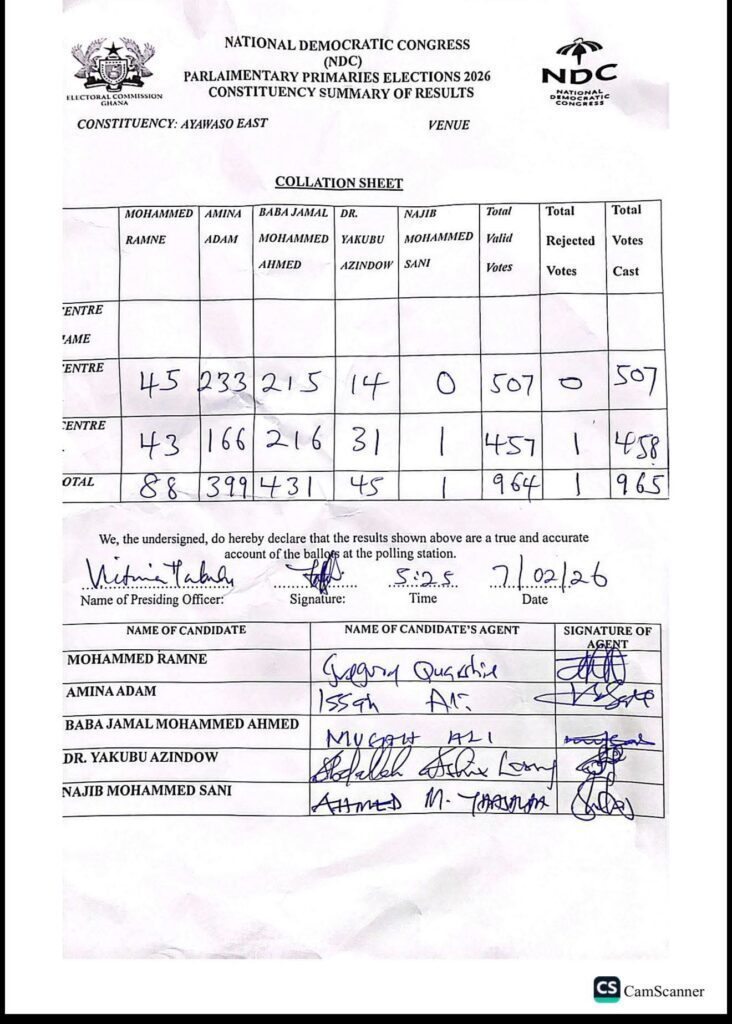 NATIONAL DEMOCRATIC CONGRESS
(NDC)
PARLAIMENTARY PRIMARIES ELECTIONS 2026
CONSTITUENCY SUMMARY OF RESULTS
ELECTORAL COMMISSION
GHANA
NDC
NATIONAL
DEMOCRATIC
CONGRESS
CONSTITUENCY: AYAWASO EAST VENUE
COLLATION SHEET
MOHAMMED RAMNE AMINA ADAM BABA JAMAL MOHAMMED AHMED DR. YAKUBU AZINDOW NAJIB MOHAMMED SANI Total Valid Votes Total Rejected Votes Total Votes Cast
ENTRE
AME
ENTRE 45 233 215 14 0 507 0 507
ENTRE 43 166 216 31 1 457 1 458
OTAL 88 399 431 45 1 964 1 965
We, the undersigned, do hereby declare that the results shown above are a true and accurate
account of the ballots at the polling station.
5:25 7/02/26
Name of Presiding Officer: Signature: Time Date
NAME OF CANDIDATE NAME OF CANDIDATE'S AGENT SIGNATURE OF AGENT
MOHAMMED RAMNE
AMINA ADAM Issah
BABA JAMAL MOHAMMED AHMED ALI
DR. YAKUBU AZINDOW Abdallah
NAJIB MOHAMMED SANI AHMED M.
CS CamScanner